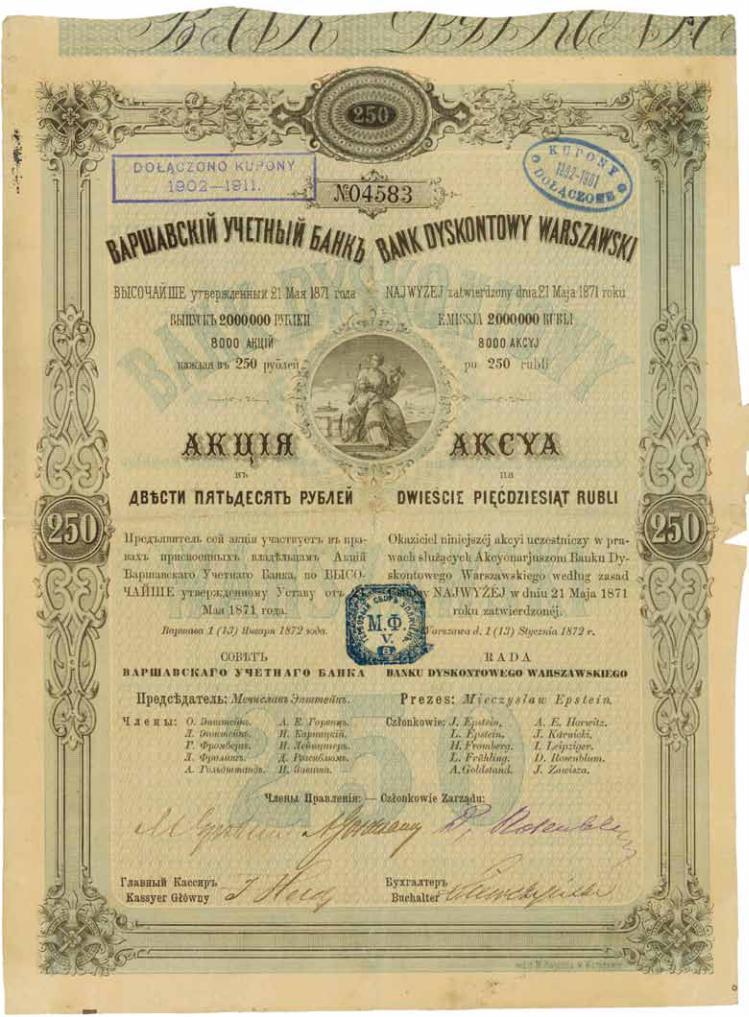 250
DOŁĄCZONO KUPONY
1902—1911.
KUPONY
DOŁĄCZONE
№04583
ВАРШАВСКІЙ УЧЕТНЫЙ БАНКЪ
ВЫСОЧАЙШЕ утвержденный 21 Мая 1871 года
ВЫПУСКЪ 2000000 РУБЛЕЙ
8000 АКЦІЙ
каждая въ 250 рублей
BANK DYSKONTOWY WARSZAWSKI
NAJWYŻEJ zatwierdzony dnia 21 Maja 1871 roku
EMISSJA 2000000 RUBLI
8000 AKCYJ
po 250 rubli
АКЦІЯ
въ
ДВѢСТИ ПЯТЬДЕСЯТЪ РУБЛЕЙ
AKCYA
na
DWIEŚCIE PIĘĆDZIESIĄT RUBLI
250
250
Предъявитель сей акціи участвуетъ въ пра-
вахъ присвоенныхъ владѣльцамъ Акцій
Варшавскаго Учетнаго Банка, по ВЫСО-
ЧАЙШЕ утвержденному Уставу отъ
Мая 1871 года.
Варшава 1 (13) Января 1872 года.
Okaziciel niniejszéj akcyi uczestniczy w pra-
wach służących Akcyonarjuszom Banku Dy-
skontowego Warszawskiego według zasad
NAJWYŻEJ w dniu 21 Maja 1871
roku zatwierdzonéj.
Warszawa d. 1 (13) Stycznia 1872 r.
М.Ф.
V.
СОВѢТЪ
ВАРШАВСКАГО УЧЕТНАГО БАНКА
Предсѣдатель: Мечиславъ Эпштейнъ.
Члены: О. Эпштейнъ. А. Е. Горвицъ.
Л. Эпштейнъ. И. Карницкій.
Г. Фромбергъ. И. Лейпцигеръ.
Л. Фрелингъ. Д. Розенблюмъ.
А. Гольдштандъ. И. Завиша.
RADA
BANKU DYSKONTOWEGO WARSZAWSKIEGO
Prezes: Mieczysław Epstein.
Członkowie: J. Epstein. A. E. Horwitz.
L. Epstein. J. Karnicki.
H. Fromberg. I. Leipziger.
L. Frühling. D. Rosenblum.
A. Goldstand. J. Zawisza.
Члены Правленія: — Członkowie Zarządu:
Главный Кассиръ
Kassyer Główny
Бухгалтеръ
Buchalter
250